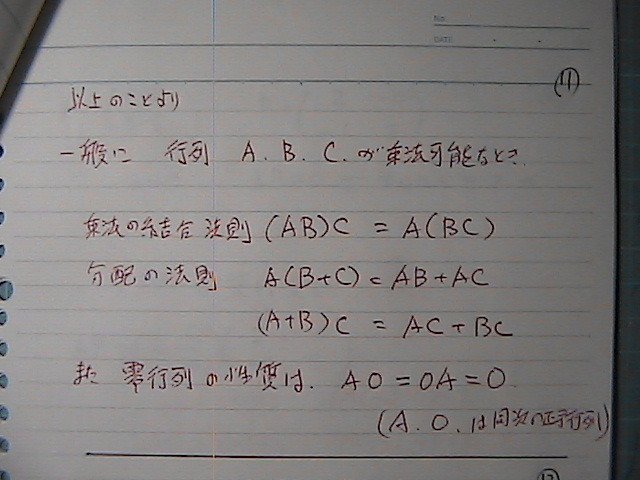 NO.
DATE
(11)
以上のことより
一般に 行列 A.B.C.が乗法可能なとき.
乗法の結合法則 (AB)C = A(BC)
分配の法則 A(B+C) = AB+AC
(A+B)C = AC+BC
また 零行列の性質は. AO=OA=O
(A.O.は同次の正方行列)